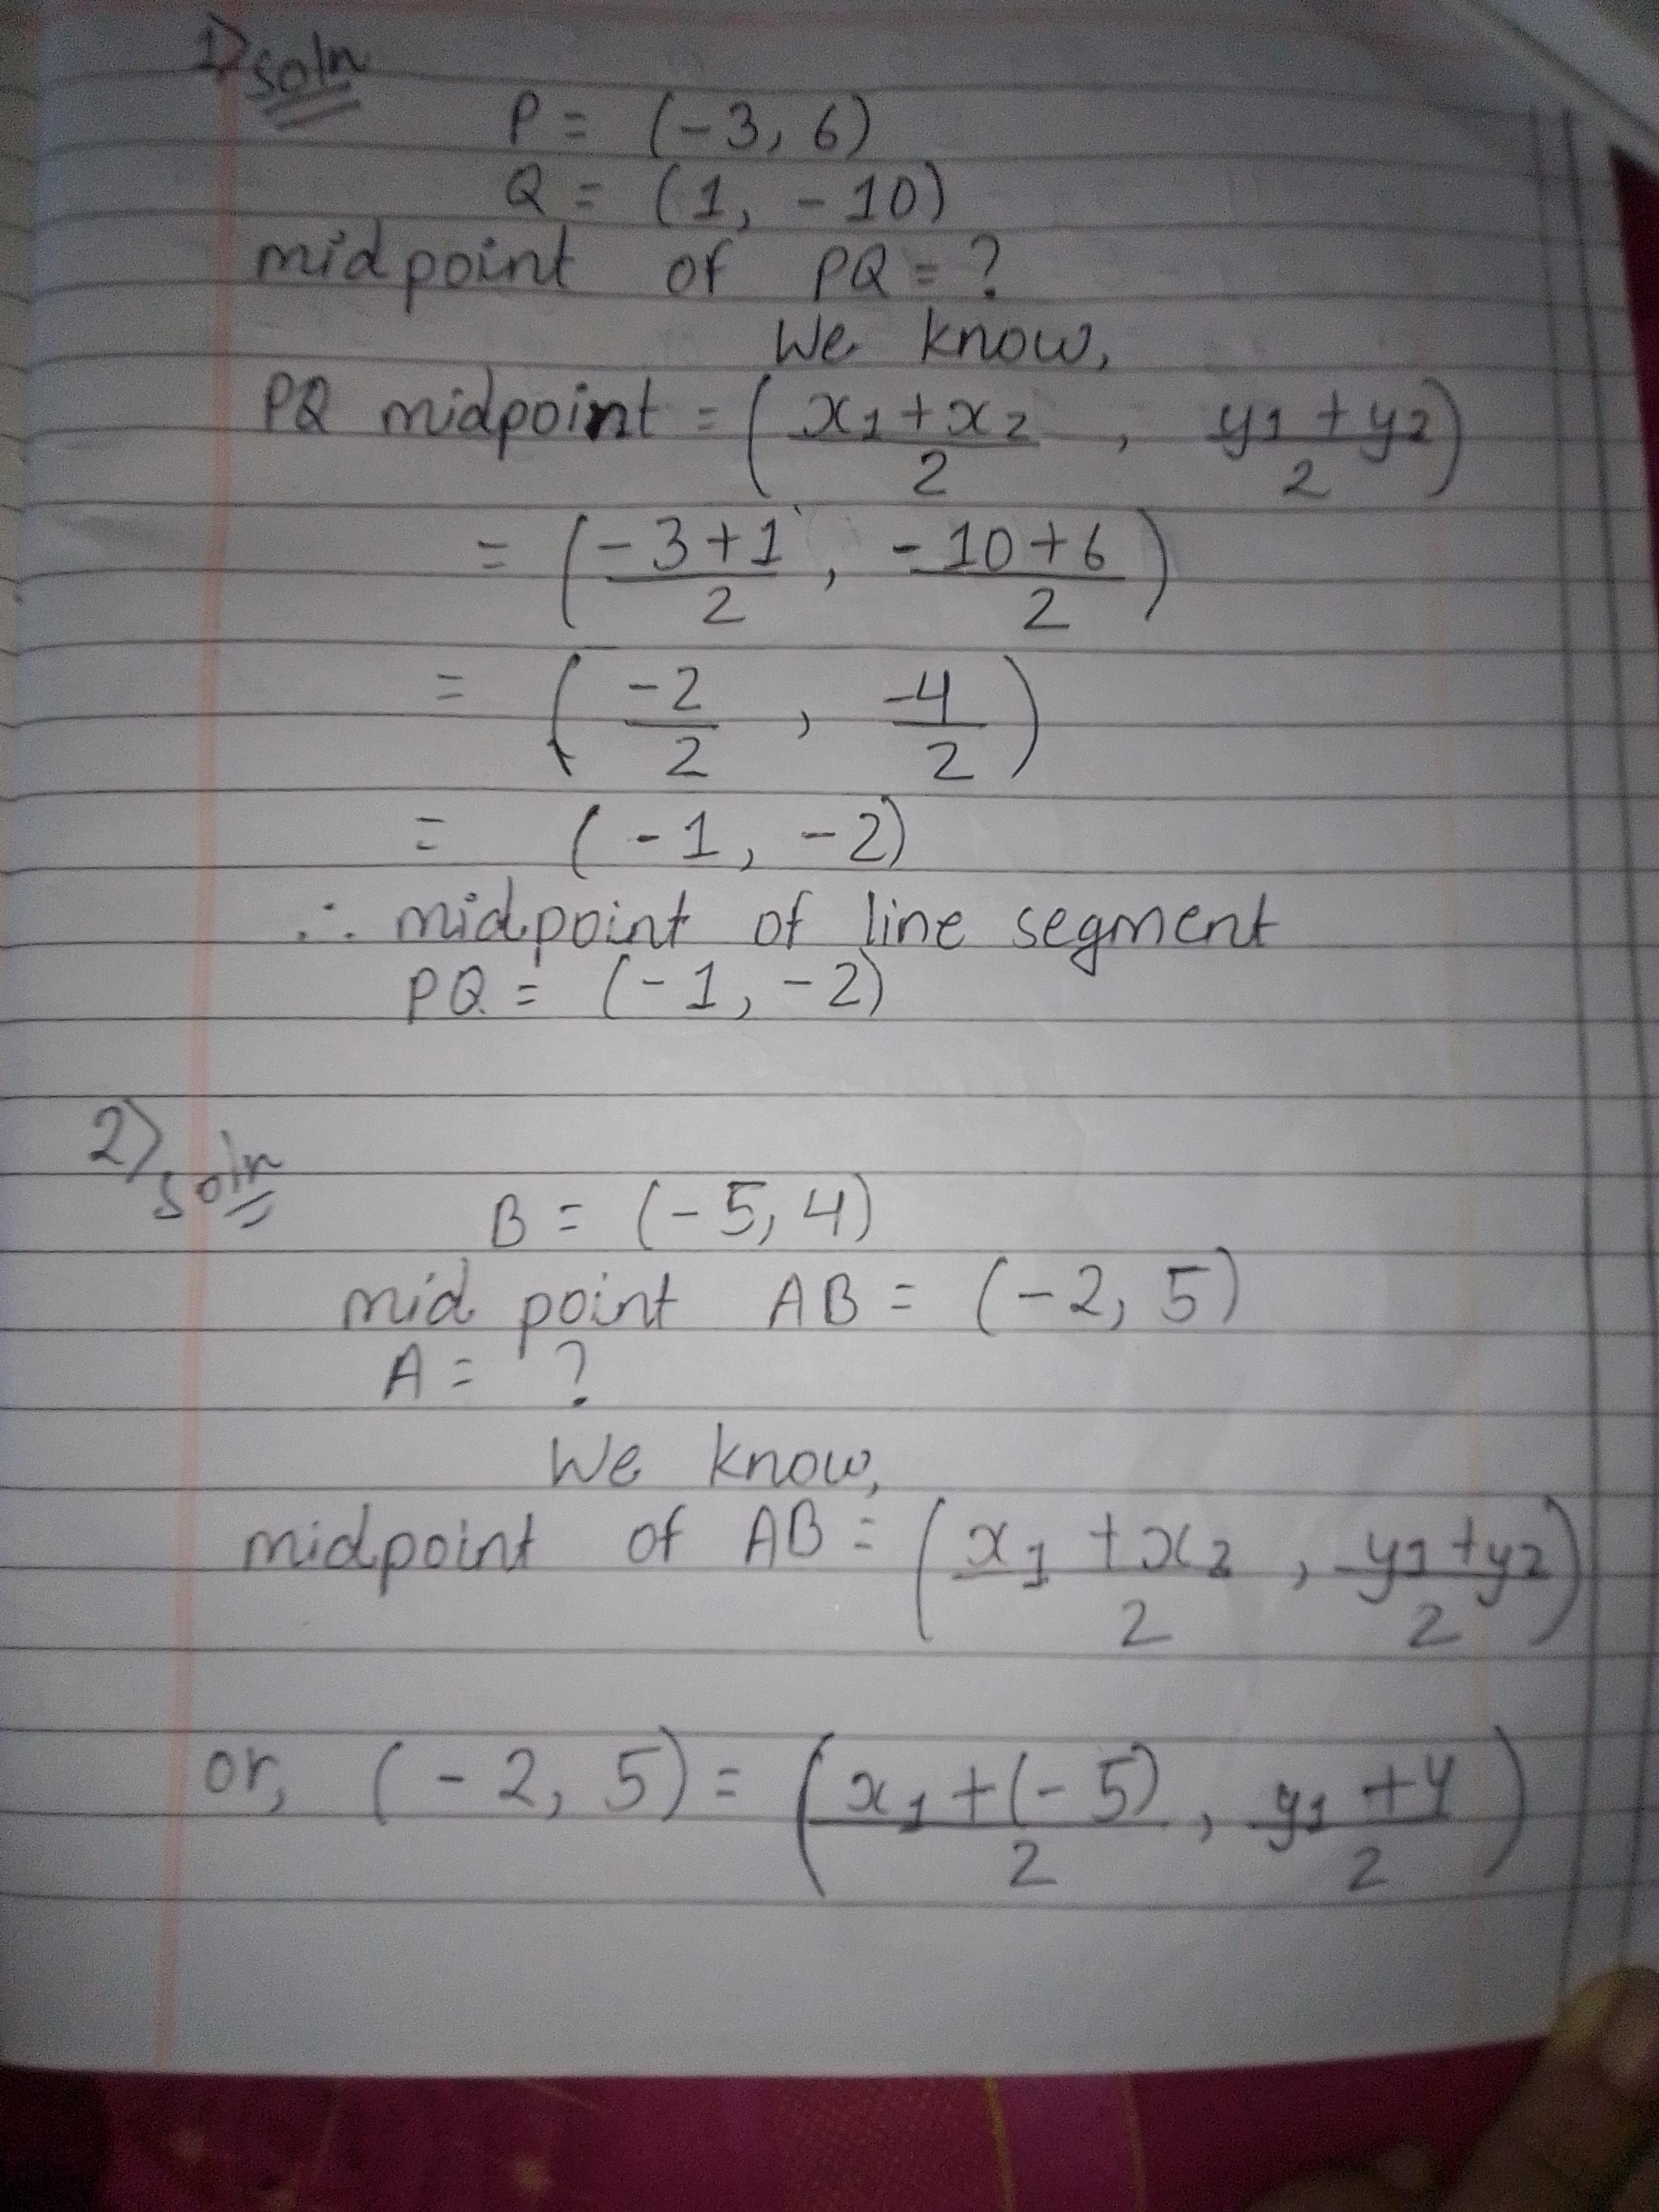 1) soln
P = (-3, 6)
Q = (1, -10)
midpoint of PQ = ?
We know,
PQ midpoint = (x₁+x₂/2, y₁+y₂/2)
= (-3+1/2, -10+6/2)
= (-2/2, -4/2)
= (-1, -2)
∴ midpoint of line segment
PQ = (-1, -2)
2) soln
B = (-5, 4)
mid point AB = (-2, 5)
A = ?
We know,
midpoint of AB = (x₁+x₂/2, y₁+y₂/2)
or, (-2, 5) = (x₁+(-5)/2, y₁+4/2)